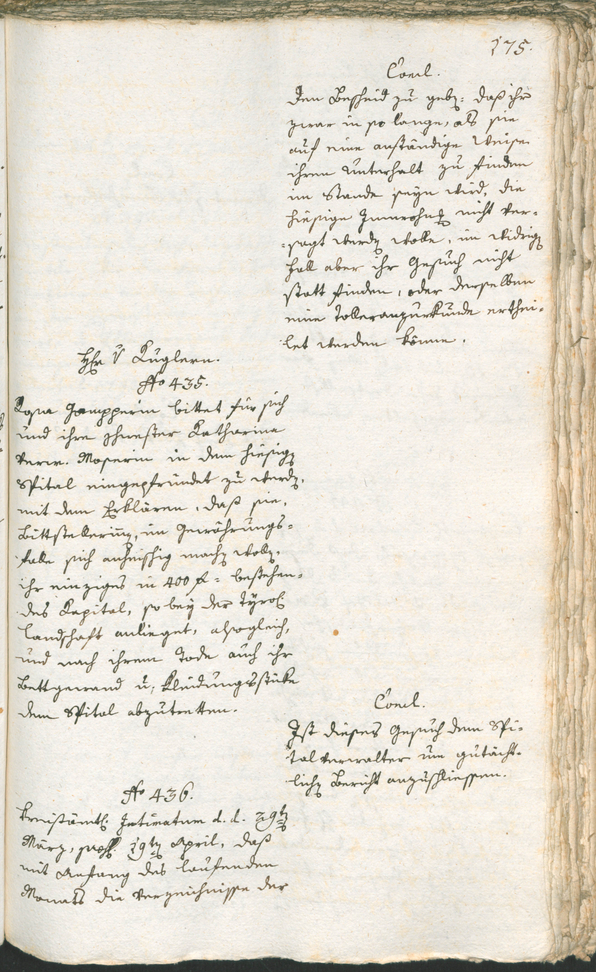 175.
Concl.
den Bescheid zu geb: daß ihr
zwar in so lange, als sie
auf eine anständige Weise
ihren Unterhalt zu finden
im Stande seyn wird, die
hiesige Innwohn nicht ver-
-sagt werdn wolle, im widrign
fall aber ihr Gesuch nicht
statt finden, oder derselben
eine Tolleranzurkunde erthei-
let werden könne.
Hr v Kuglern.
No 435.
Rosa Gampperin bittet für sich
und ihre Schwester Katharina
verw. Moserin in dem hiesign
Spital eingepfründet zu werdn,
mit dem Erklären, daß sie,
Bittstellerinn, im Gewährungs-
falle sich anheischig mach wolle,
ihr einziges in 400 f - bestehen-
des Kapital, so bey der Tyrol
Landschaft anlieget, alsogleich,
und nach ihrem Tode auch ihr
Bettgewand u, Kleidungsstüke
dem Spital abzutretten.
Concl.
Ist dieses Gesuch dem Spi-
talverwalter um gutächt-
lichn Bericht anzuschliessen.
No 436.
Kreisämtl: Intimatum d. d. 29tn
März, pras. 19tn April, daß
mit Anfang des laufenden
Monats die Verzeichnisse der